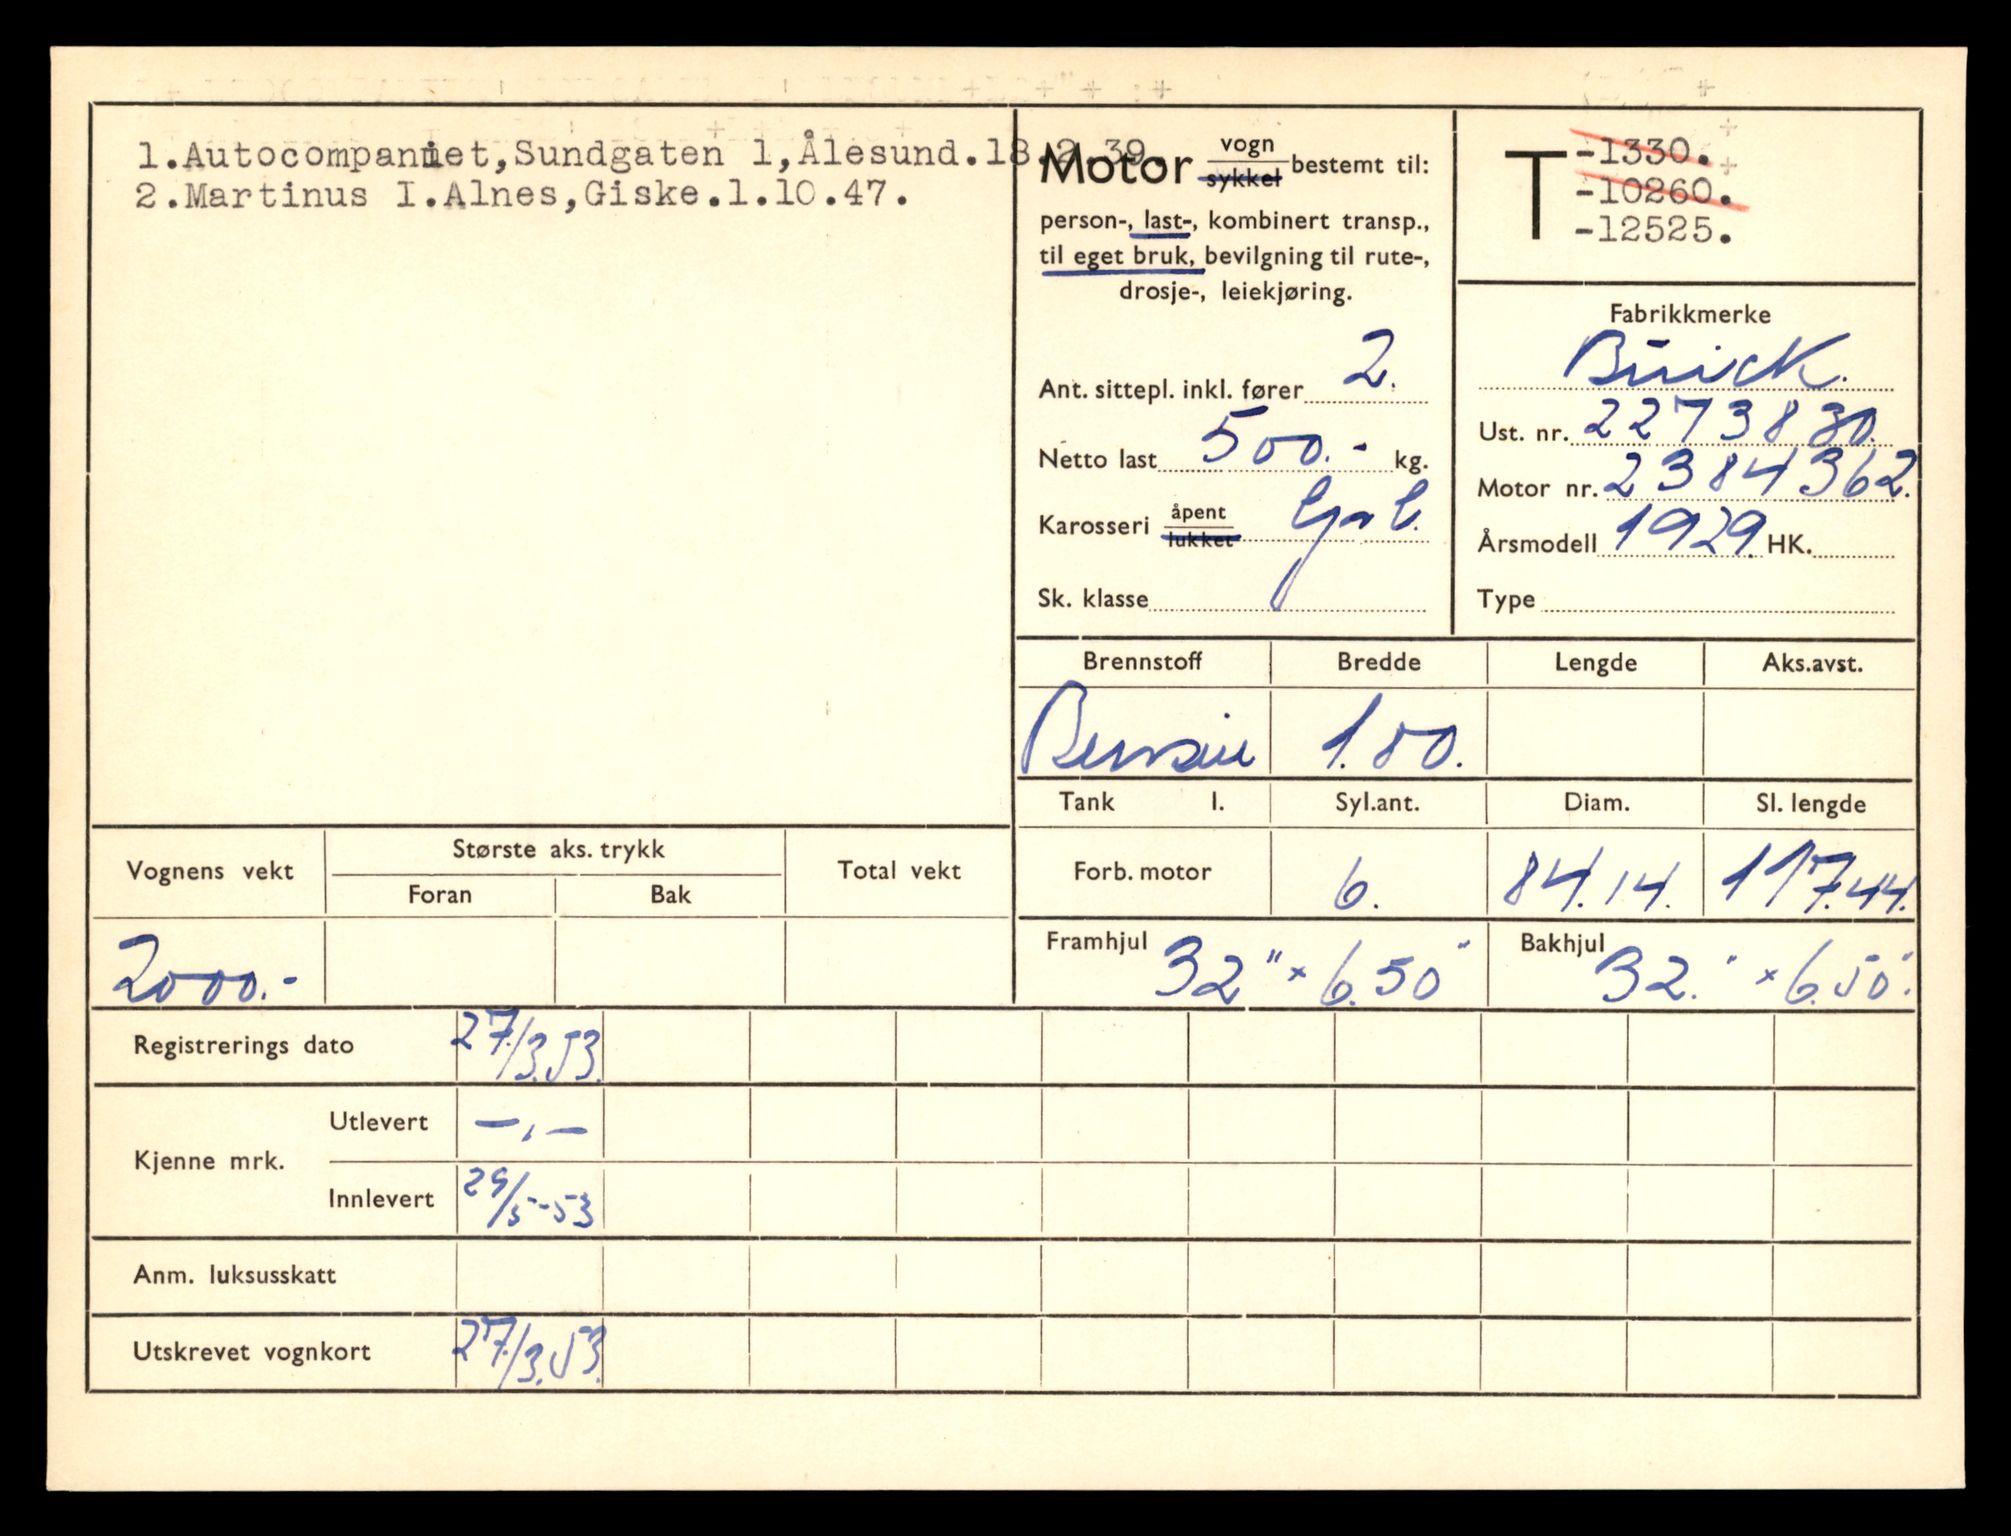 1.Autocompaniet,Sundgaten 1,Ålesund.18.2.39.
2.Martinus I.Alnes,Giske.1.10.47.
Motor vogn sykkel bestemt til:
person-, last-, kombinert transp.,
til eget bruk, bevilgning til rute-,
drosje-, leiekjøring.
Ant. sittepl. inkl. fører 2.
Netto last 500.- kg.
Karosseri åpent lukket
Sk. klasse
T -1330.
-10260.
-12525.
Fabrikkmerke
Buick.
Ust. nr. 2273830.
Motor nr. 2384362.
Årsmodell 1929. HK.
Type
Brennstoff Bredde Lengde Aks.avst.
Bensin 1.80.
Tank l. Syl.ant. Diam. Sl. lengde
Forb. motor 6. 84.14. 117.44.
Framhjul 32" × 6.50" Bakhjul 32." × 6.50".
Vognens vekt Største aks. trykk Total vekt
Foran Bak
2000.-
Registrerings dato 27/3.53.
Kjenne mrk. Utlevert -,-
Innlevert 29/5-53
Anm. luksusskatt
Utskrevet vognkort 27/3.53.